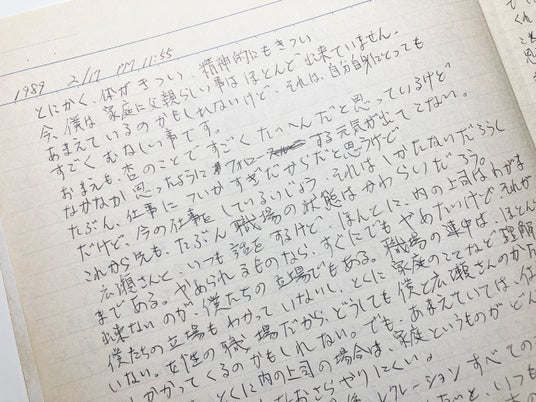 1989 2/17 PM 11:55
とにかく、体がきつい、精神的にもきつい
今、僕は家庭に父親らしい事はほとんど出来ていません。
あまえているのかもしれないけど、それは、自分自身にとっても
すごくむなしい事です。
おまえも、杏のことですごくたいへんだと思っているけど
なかなか思ったようにフォローする元気が出てこない。
たぶん、仕事に力いかすぎだからだと思うけど
だけど、今の仕事をしているいじょう、それはしかたないだろうし
これから先も、たぶん職場の状態はかわらいだろう。
広瀬さんと、いつも話をするけど、ほんとに、内の上司はわがま
まである。やめられるものなら、すぐにでもやめたいけど、それが
出来ないのが、僕たちの立場でもある。職場の連中は、ほとん
僕たちの立場もわかっていないし、とくに家庭のことなど理解
いない。女性の職場だから、どうしても僕と広瀬さんがた
しかかってくるのかもしれない。でも、あまえていては、仕
とくに内の上司の場合は、家庭というものがどん
おさらやりにくい。
レクレーションすべての